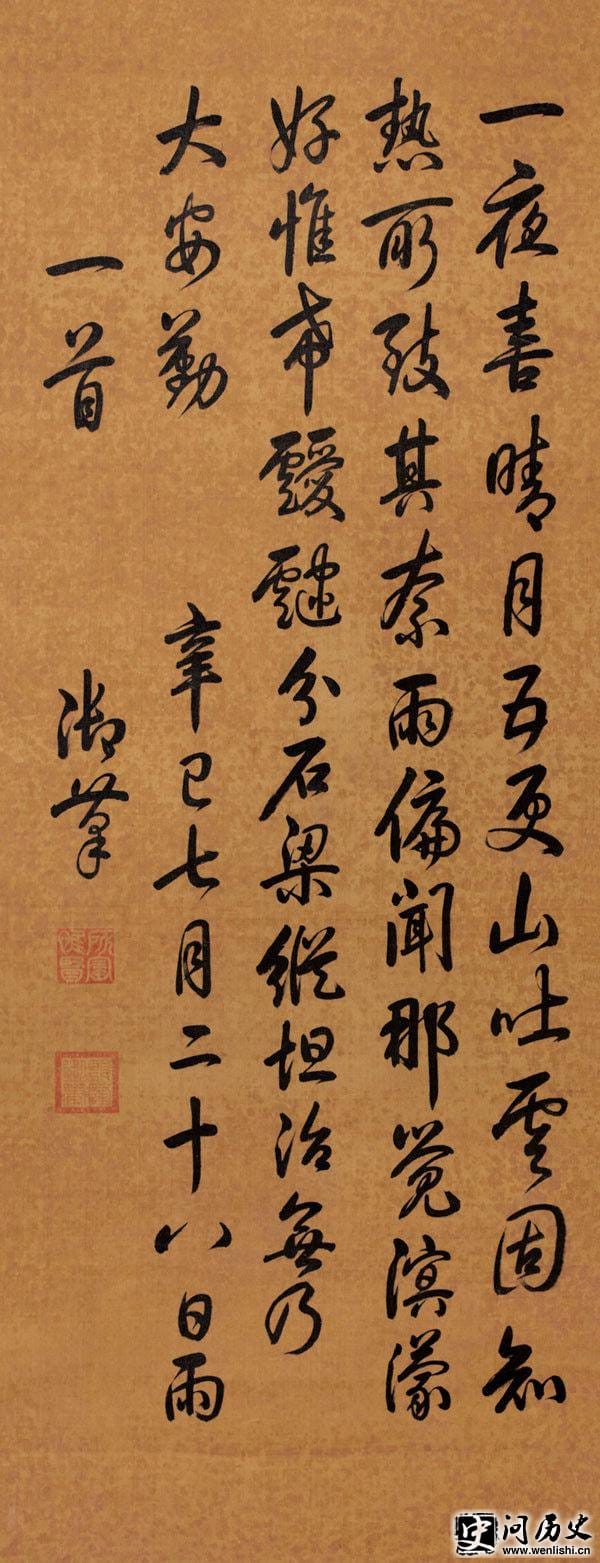 一夜喜晴月五更山吐雲固知
熱所致其奈雨偏聞那覓溟濛
好惟希靉靆分石梁縱坦治無乃
大安勤
辛巳七月二十八日雨
一首
御筆
史 问历史
www.wenlishi.cn